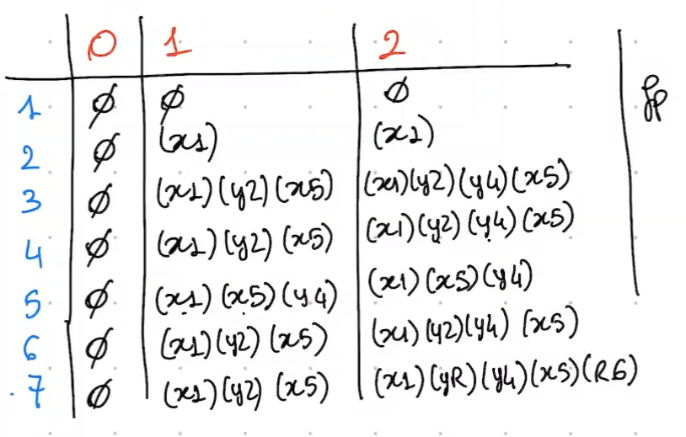 0 1 2
1 ∅ ∅ ∅ fp
2 ∅ (x1) (x1)
3 ∅ (x1)(y2)(x5) (x1)(y2)(y4)(x5)
4 ∅ (x1)(y2)(x5) (x1)(y2)(y4)(x5)
5 ∅ (x1)(x5)(y4) (x1)(x5)(y4)
6 ∅ (x1)(y2)(x5) (x1)(y2)(y4)(x5)
7 ∅ (x1)(y2)(x5) (x1)(yR)(y4)(x5)(R6)